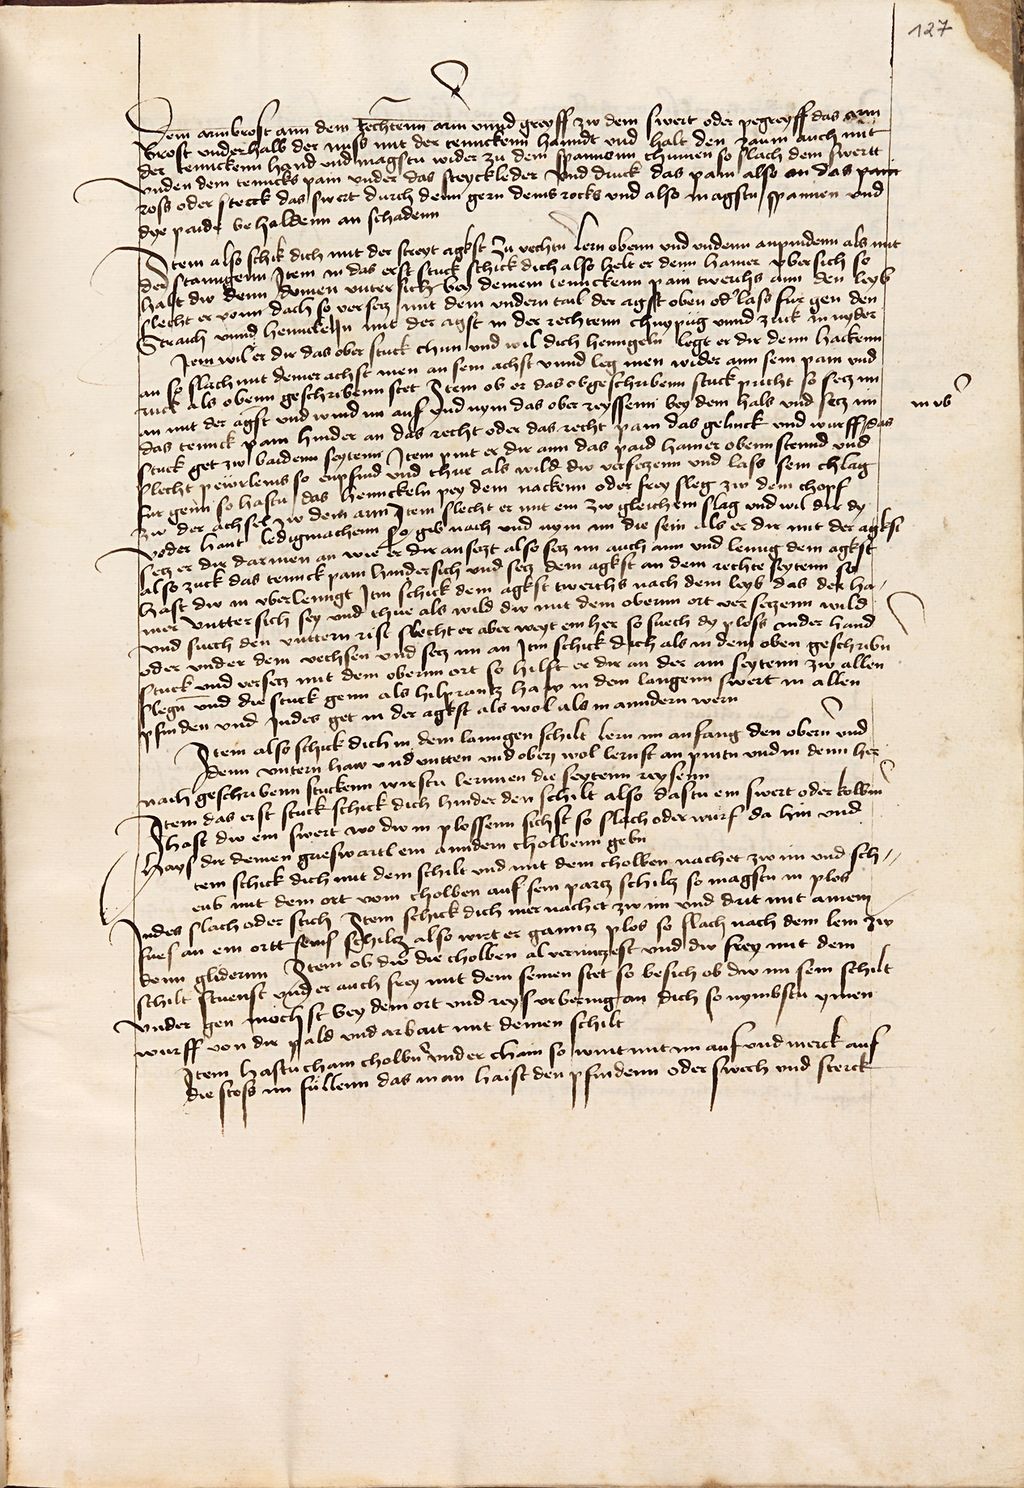 127
Dem armbrost ann dem rechtenn arm unnd greyff zw dem swert oder pegreyff das arm
brost underhalb der nuss mit der tennckenn hanndt und halt den zaum auch mit
der tennckenn hand und magstu wider zu dem spannenn chumen so slach dem swertt
unden dem tenncks pain under das steyckleder und druck das pain also an das pain
ross oder steck das swert durch denn gern deins rocks und also magstu spannen und
dye paide behaldenn an schadenn
Item also schik dich mit der streyt agkst zu vechtn lern obenn und undenn anpindenn als mit
der stanngenn Item in das erst stuck schick dich also helt er denn hamer ubersich so
halt dw denn deinen untersich bey deinem tennckenn pain twerichs ann den leyb
slecht er vonn dach so versetz mit dem undern tail der agst oben od' lass fur gen den
straich unnd hennckelln mit der agst in der rechtenn chnypüg unnd zuck in nyder
Item wil er dir das ober stuck thun und wil dich henngeln legt er dir denn hackenn
an so slach mit deiner achst inen an sein achst unnd leg inen wider ann sein pain und
ruck als obenn geschribenn stet Item ob er das obgeschribenn stuck pricht so secz im
an mit der agst und wind im auf und nym das ober reyssenn bey dem hals und secz im
das tennck pain hinder an das recht oder das recht pain das gelinck und wurff das
stuck get zw baidenn seytenn Item pint er dir ann das paid hamer obenn stennd und
slecht pewrleins so enpfind und thue als wild dw versetzenn und lass sein chlag
fur genn so hastu das hennckeln pey dem nackenn oder frey sleg zw dem chopf
zw der achsel zw dem arm Item slecht er mit ein zw gleichem slag und wil dir dy
voder hant ledigmachenn so gib nach und nym im die sein als er dir mit der agkst
secz er dir darinen an wie er dir ansetzt also secz im auch ann und leinng dein agkst
also zuck das tennck pain hindersich und secz dein agkst an dem rechte seytenn so
hast dw in uberleinngt Itm schick dein agkst twerichs nach dem leyb das der ha-
mer unttersich sey und thue als wild dw mit dem obernn ort versetzenn wild
und suech den unttern rist slecht er aber weyt ein her so suech dy ploss inder hand
oder under dem uechsen und secz im an Itm schick dich als in dem oben geschribn
stuck und versetz mit dem obernn ort so hilft er dir an der ain seytenn zw allen
slegn und die stuck genn als hilprantz haw in dem langenn swert in allen
pfinden und Indes get in der agkst als wol als in anndern wern
Item also schick dich in dem lanngen schilt lern im anfang den obern und
denn untern haw und untten und obenn wol lernst an pintn und in denn her
nach geschribenn stuckenn wirstu lernnen die seytenn reysenn
Item das erst stuck schick dich hinder den schilt also dastu ein swert oder kolbnn
hast dw ein swert wo dw in plossenn sichst so slach oder wurf da hin und
hays dir deinen grieswartl ein anndern cholbenn gebn
Item schick dich mit dem schilt und mit dem cholben nachet zw im und sch-
eub mit dem ort vom cholben auf sein partz schiltz so magstu in plos
Indes slach oder stich Item schick dich mer nachet zw im und drit mit ainem
fues an ein ortt seins schiltz also wirt er ganntz plos so slach nach dem lem zw
denn glidernn Item ob dw die cholben al verwirfest und dw frey mit dem
schilt stuenst und er auch frey mit dem seinen stet so besich ob dw im sein schilt
under gen möchst bey dem ort und reys urbering an dich so nymbstu ymen
wurff von dir pald und arbait mit deinen schilt
Item hastu chain cholbn under chain so wint mit im auf und merck auf
die stoss im fullenn das man haist den pfindenn oder swech und sterck